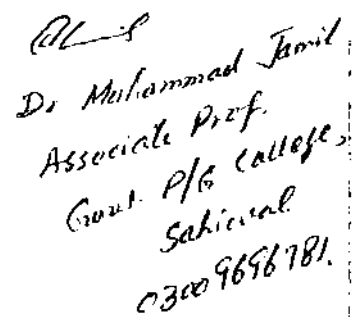 Dr Muhammad Jamil
Associate Prof.
Govt. P/G College,
Sahiwal
0300 9696781.